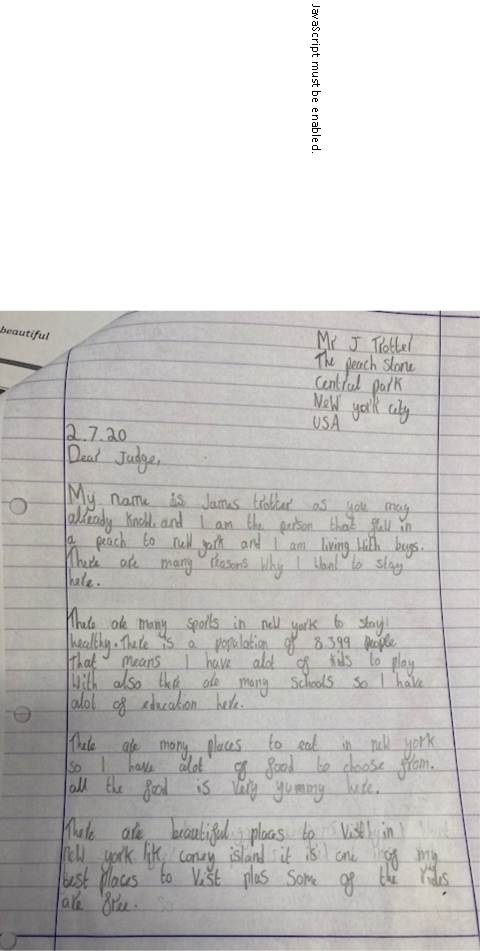 JavaScript must be enabled.
beautiful
Mr J Trotter
The peach stone
Central park
New york city
USA
2.7.20
Dear Judge,
My name is James trotter as you may
already know and I am the person that flew in
a peach to new york and I am living with bugs.
There are many reasons why I want to stay
here.
There are many sports in new york to stay
healthy. There is a population of 8.399 people
That means I have alot of kids to play
with also there are many schools so I have
alot of education here.
There are many places to eat in new york
so I have alot of food to choose from.
all the food is very yummy here.
There are beautiful places to Visit in
new york lik coney island it is one of my
best places to Vist plus Some of the rides
are free.